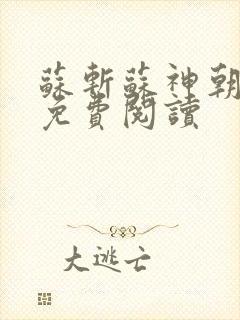 蘇斬蘇神朝
免費閱讀
大逃亡